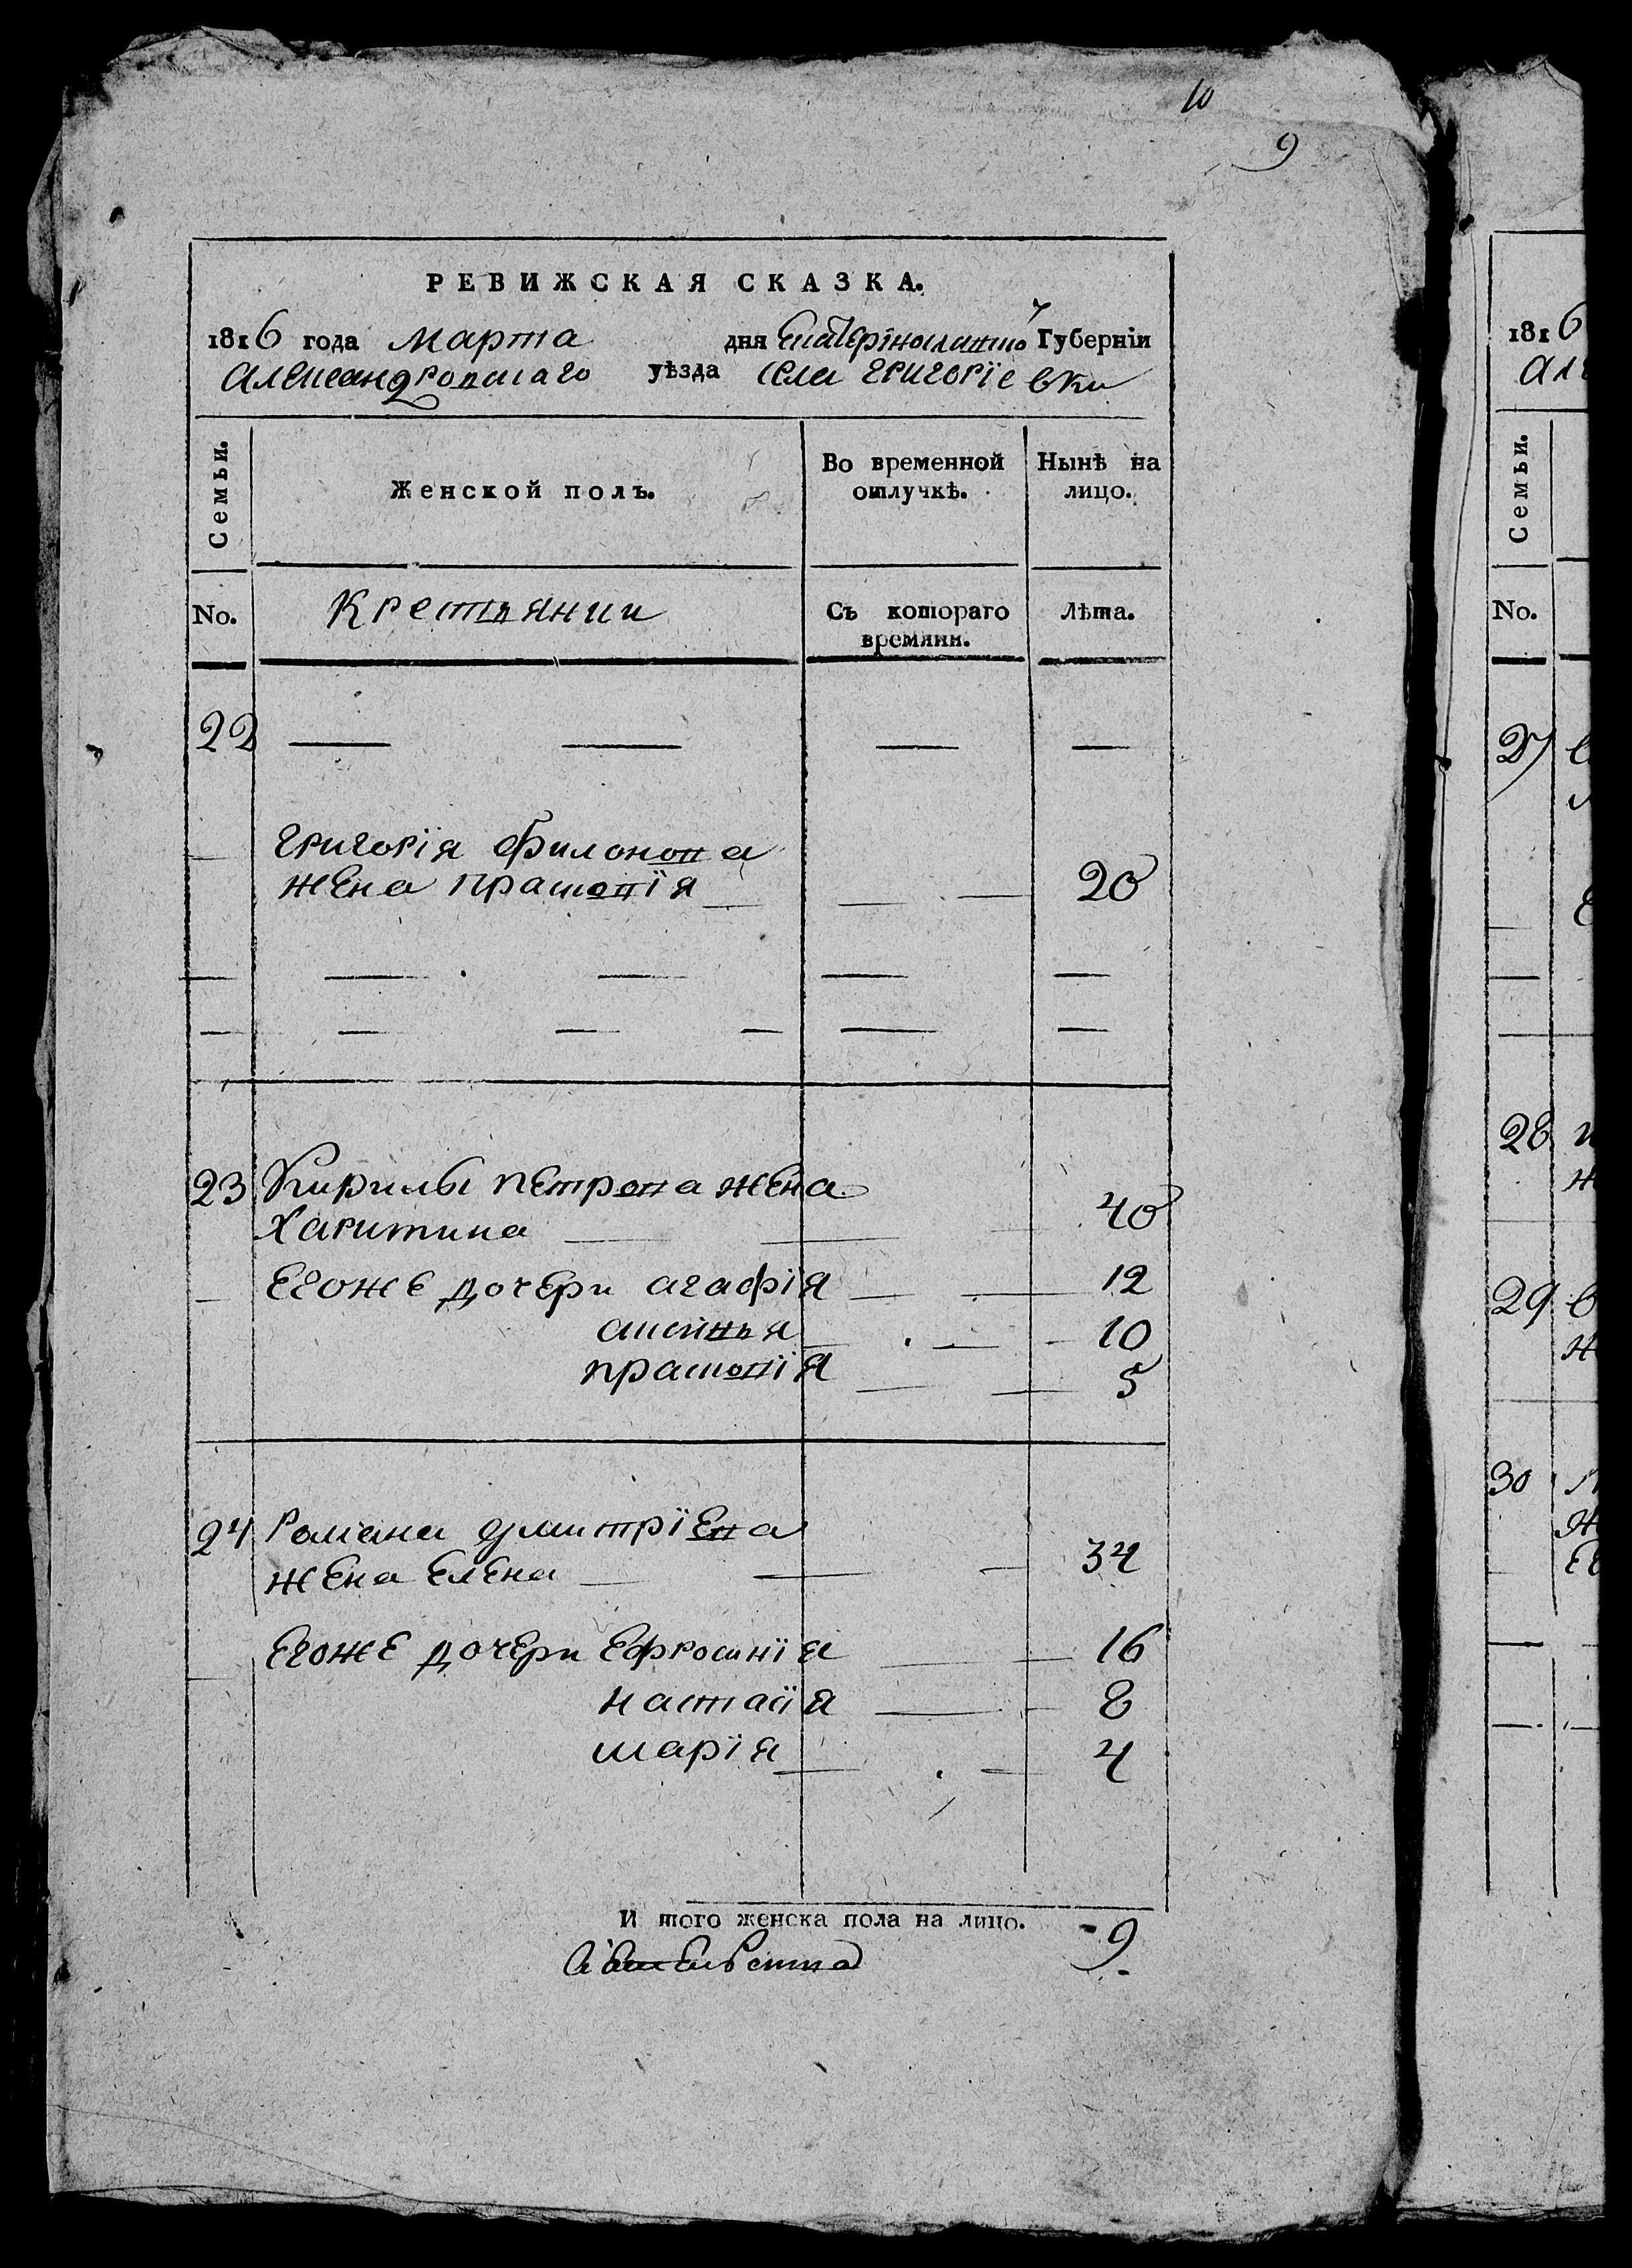 10
9
РЕВИЖСКАЯ СКАЗКА.
1816 года Марта дня Екатеринославской Губернiи
Александровскаго уѣзда села Григорiевки
Семьи. Женской полъ. Во временной отлучкѣ. Нынѣ на лицо.
No. Крестьянки Съ котораго времяни. Лѣта.
22 — — — —
Григорiя Филонова
жена праско​вiя — — 20
— — — — —
— — — — — —
23 Кирилы петрова жена
Харитина — — 40
Егоже дочери агафiя — — 12
аксинья — — 10
прасковiя — — 5
24 Романа дмитрiева
жена Елена — — 34
Егоже дочери Ефросинiя — — 16
настасiя — — 8
марiя — — 4
И того женска пола на лицо. 9
1816
Але
Семьи.
No.
27
28
29
30